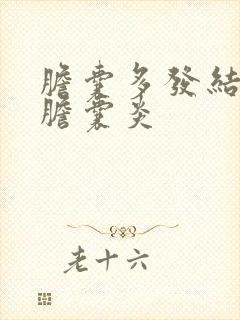 膽囊多發結
膽囊炎
老十六